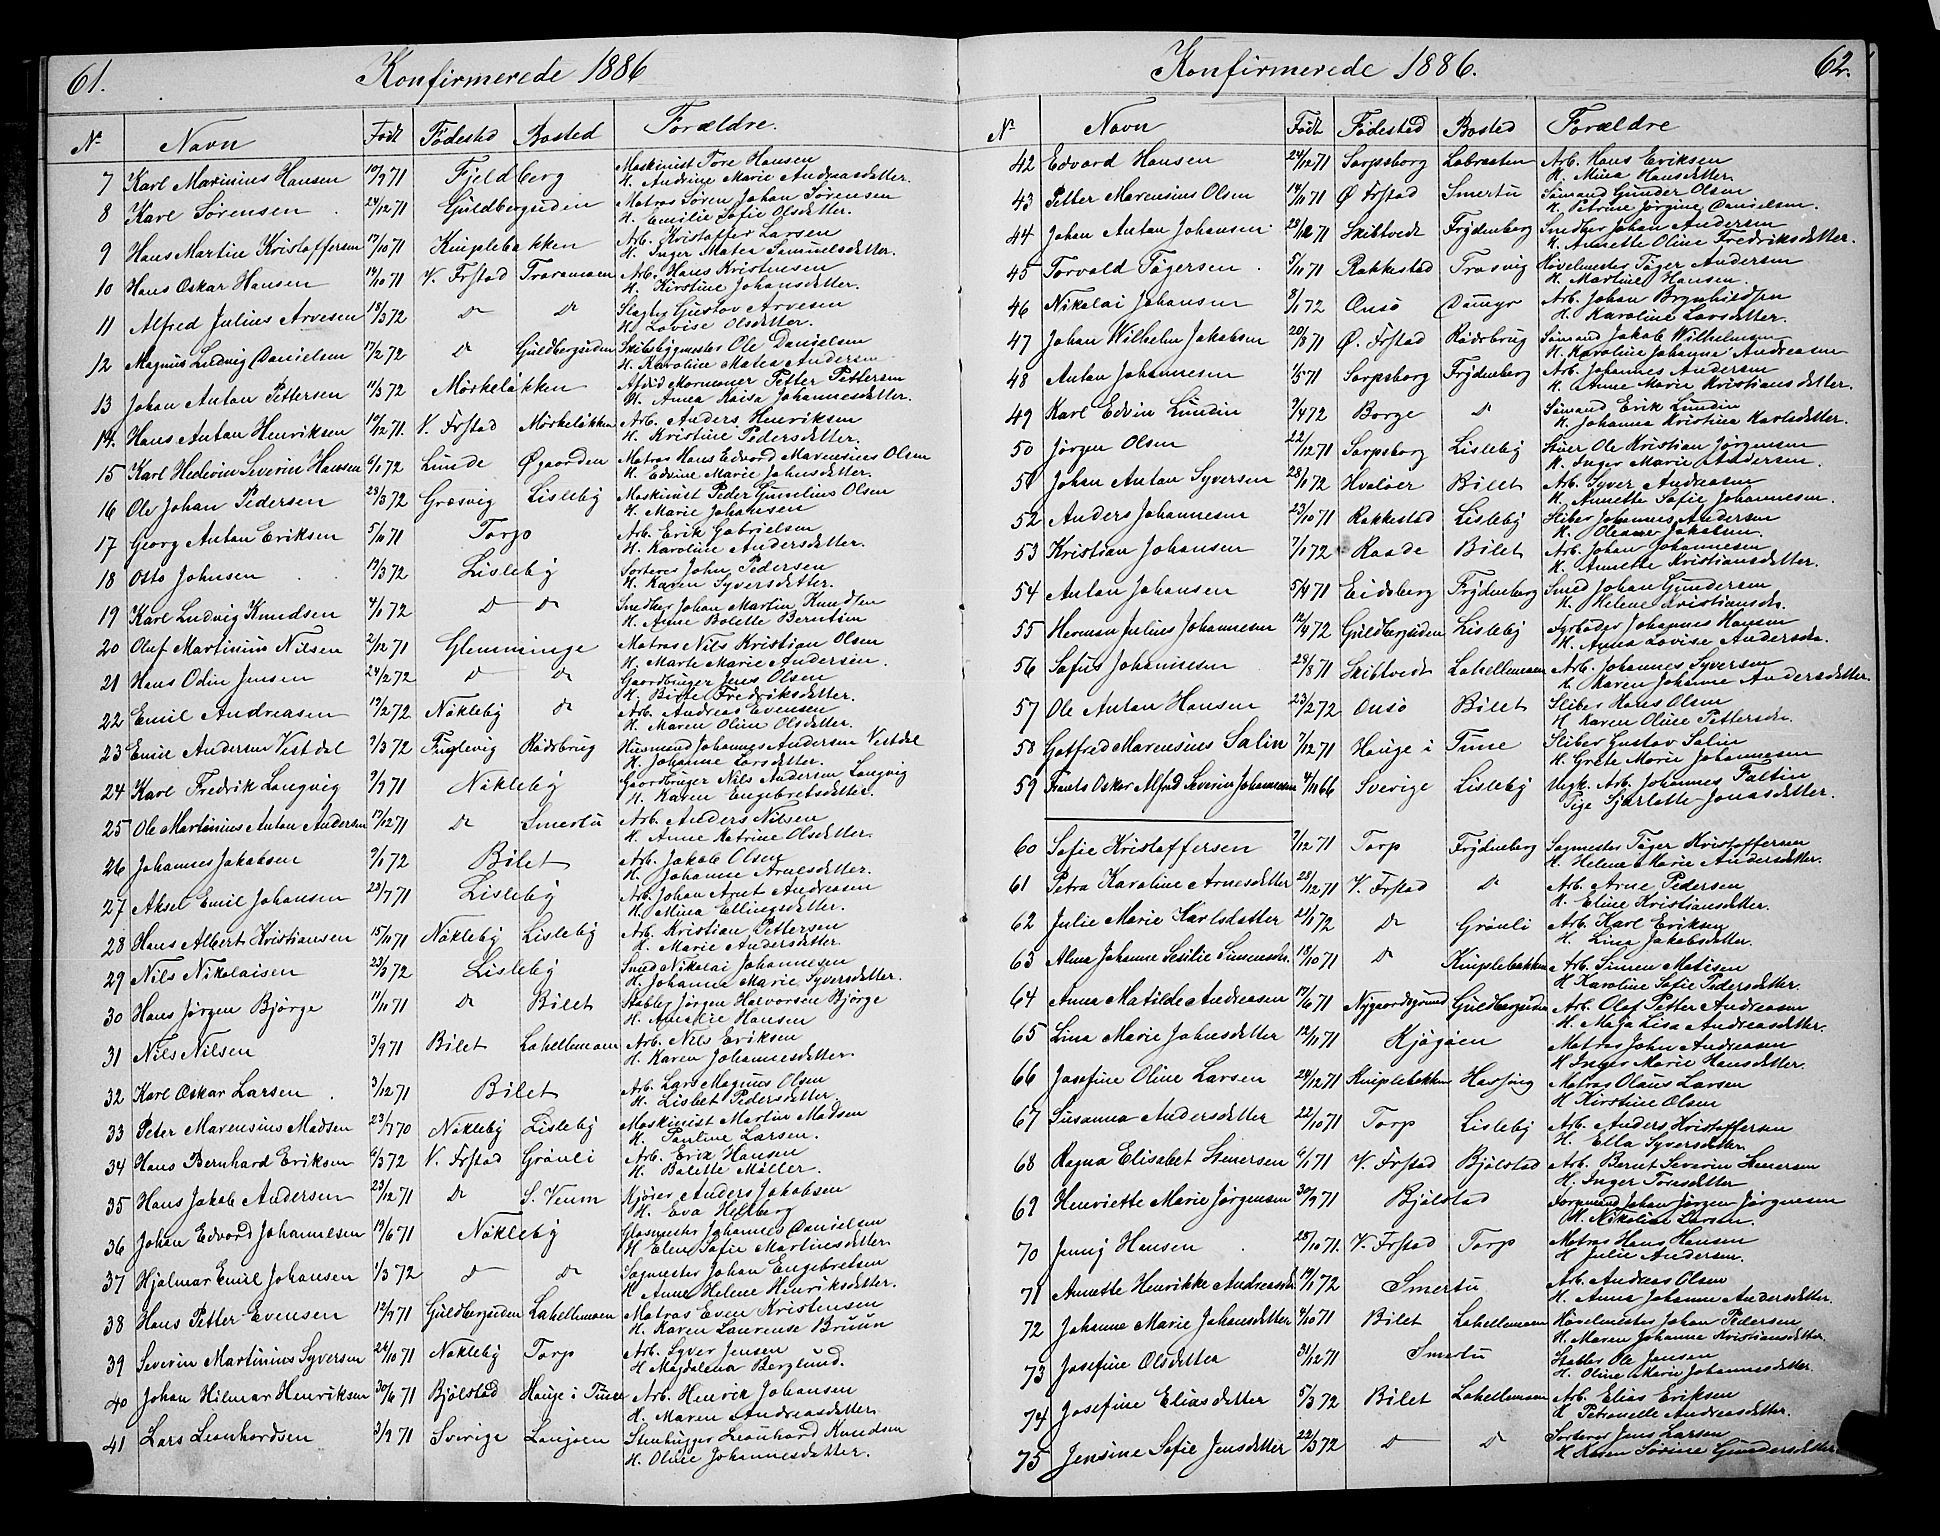 61. Konfirmerede 1886
Nr Navn Født Fødested Bosted Forældre.
7 Karl Marinius Hansen 10/9 71 Fjeldberg Maskinist Tore Hansen
H. Andrine Marie Andreasdetter.
8 Karl Sørensen 24/12 71 Guldbergsiden Matros Søren Johan Sørensen
H. Emilie Sofie Olsdetter.
9 Hans Martin Kristoffersen 17/10 71 Kniplebakken Arb. Kristoffer Larsen
H. Inger Matea Samuelsdetter.
10 Hans Oskar Hansen 14/10 71 V. Frstad Traramoen Arb. Hans Kristensen
H. Kirstine Johansdetter.
11 Alfred Julius Arvesen 18/3 72 Do Do Slagter Gustav Arvesen
H. Lovise Olsdetter.
12 Magnus Ludvig Danielsen 17/2 72 Do Guldbergsiden Skibsbygmester Ole Danielsen
H. Karoline Matea Andersen
13 Johan Anton Pettersen 11/3 72 Mørkeløkken Afdød Mormoner Petter Pettersen
H. Anna Kaisa Johannesdetter.
14. Hans Anton Henriksen 10/12 71. V. Frstad Mørkeløkken Arb. Anders Henriksen
H. Kristine Pedersdetter.
15 Karl Hedevin Severin Hansen 6/1 72 Lunde Øgaarden Matros Hans Edvard Marensius Olsen
H. Edvine Marie Johansdetter.
16 Ole Johan Pedersen 28/3 72 Græsvig Lisleby Maskinist Peder Gunelius Olsen
H. Marie Johansen
17 Georg Anton Eriksen 5/10 71 Torp Arb. Erik Gabrielsen
H. Karoline Andersdetter.
18 Otto Johnsen 19/3 72 Lisleby Sorterer John Pedersen
H. Karen Syversdetter.
19 Karl Ludvig Knudsen 4/1 72 Do Do Snedker Johan Martin Knudsen
H. Anne Bolette Berntsen
20 Oluf Martinius Nilsen 2/12 71 Glemminge Matros Nils Kristian Olsen
H. Marte Marie Andersen.
21 Hans Odin Jensen 24/2 72 Do Do Gaardbruger Jens Olsen
H. Birte Fredriksdetter.
22 Emil Andreasen 19/2 72 Nøkleby Do Arb. Andreas Evensen
H. Maren Oline Olsdetter.
23 Emil Andersen Vestdal 7/3 72 Fuglevig Rødsbrug Husmand Johannes Andersen Vestdal
H. Johanne Larsdetter.
24 Karl Fredrik Langvig 9/9 71 Nøkleby Gaardbruger Nils Andersen Langvig
H. Karen Engebretsdetter.
25 Ole Martinius Anton Andersen 17/12 71 Do Smertu Arb. Anders Nilsen
H. Anne Katrine Olsdetter.
26 Johannes Jakobsen 9/1 72 Bilet Arb. Jakob Olsen
H. Johanne Arnesdetter.
27 Aksel Emil Johansen 23/7 71 Lisleby Arb. Johan Arnt Andreasen
H. Mina Ellingsdetter.
28 Hans Albert Kristiansen 15/11 71 Nøkleby Lisleby Arb. Kristian Pettersen
H. Marie Andersdetter.
29 Nils Nikolaisen 23/3 72 Lisleby Smed Nikolai Johannesen
H. Johanne Marie Syversdetter.
30 Hans Jørgen Bjørge 11/11 71 Do Bilet Stabler Jørgen Halvorsen Bjørge
H. Amalie Hansen
31 Nils Nilsen 3/9 71 Bilet Lahellemoen Arb. Nils Eriksen
H. Karen Johannesdetter.
32 Karl Oskar Larsen 3/12 71 Bilet Arb. Lars Magnus Olsen
H. Lisbet Pedersdetter.
33 Peter Marensius Madsen 23/7 70 Nøkleby Lisleby Maskinist Martin Madsen
H. Pauline Larsen.
34 Hans Bernhard Eriksen 6/3 72 V. Frstad Grønli Arb. Erik Hansen
H. Bolette Møller.
35 Hans Jakob Andersen 23/12 71 Do S. Veum Kjører Anders Jakobsen
H. Eva Helberg
36 Johan Edvard Johannesen 19/6 71 Nøkleby Glasmester Johannes Danielsen
H. Elen Sofie Martinusdetter.
37 Hjalmar Emil Johansen 1/3 72 Do Do Sagmester Johan Engebretsen
H. Anne Helene Henriksdetter.
38 Hans Petter Evensen 12/9 71 Guldbergsiden Lahellemoen Matros Even Kristensen
H. Karen Laurense Bruun
39 Severin Martinius Syversen 26/10 71 Nøkleby Torp Arb. Syver Jensen
H. Magdalena Berglund.
40 Johan Hilmar Henriksen 30/6 71 Bjølstad Hauge i Tune Arb. Henrik Johansen
H. Maren Andreasdetter.
41 Lars Leonhardsen 3/9 71 Sverige Langøen Stenhugger Leonhard Knudsen
H. Oline Johannesdetter.
Konfirmerede 1886. 62.
Nr Navn Født Fødested Bosted Forældre
42 Edvard Hansen 24/12 71 Sarpsborg Labraaten Arb. Hans Eriksen
H. Mina Hansdetter.
43 Petter Marensius Olsen 14/11 71 Ø Frstad Smertu Sømand Gunder Olsen
H. Petrine Jørgine Danielsen.
44 Johan Anton Johansen 29/12 71 Skibtvedt Frydenberg Snedker Johan Andersen
H. Annette Oline Fredriksdetter.
45 Torvald Tøgersen 5/10 71 Rakkestad Trosvig Høvelmester Tøger Andersen
H. Martine Hansen.
46 Nikolai Johansen 8/1 72 Onsø Damyr Arb. Johan Brynhildsen
H. Karoline Larsdetter.
47 Johan Wilhelm Jakobsen 20/8 71 Ø. Frstad Rødsbrug Sømand Jakob Wilhelmsen
H. Karoline Johanna Andreasen
48 Anton Johannesen 1/5 71 Sarpsborg Frydenberg Arb. Johannes Andersen
H. Anne Marie Kristiansdetter.
49 Karl Edvin Lundin 9/4 72 Borge Do Sømand Erik Lundin
H. Johanna Kristina Karlsdetter.
50 Jørgen Olsen 22/12 71 Sarpsborg Lisleby Stuer Ole Kristian Jørgensen
H. Inger Marie Andersen.
51 Johan Anton Syversen 28/1 72 Hvaløer Bilet Arb. Syver Andreasen
H. Annette Sofie Johannesen.
52 Anders Johannesen 23/10 71 Rakkestad Lisleby Sliber Johannes Andersen
H. Oleane Jakobsen.
53 Kristian Johansen 7/1 72 Raade Bilet Arb. Johan Johannesen
H. Annette Kristiansdetter.
54 Anton Johansen 5/4 71 Eidsberg Frydenberg Smed Johan Gundersen
H. Helene Kristiansdr.
55 Herman Julius Johannesen 12/4 72 Guldbergsiden Lisleby Fyrbøder Johannes Hansen
H. Anna Lovise Andersdr.
56 Sofus Johannesen 29/8 71 Skibtvedt Lahellemoen Arb. Johannes Syversen
H. Maren Johanne Andersdetter.
57 Ole Anton Hansen 23/2 72 Onsø Bilet Sliber Hans Olsen
H Karen Oline Pettersdr.
58 Gotfred Marensius Salin 7/12 71 Hauge i Tune Sliber Gustav Salin
H. Grete Marie Johannesen
59 Frants Oskar Alfred Severin Johannesen 4/11 66 Sverige Lisleby Ungk. Arb. Johannes Faltin
Pige Sjarlotte Jonasdetter.
60 Sofie Kristoffersen 7/12 71 Torp Frydenberg Sagmester Tøger Kristoffersen
H. Helene Marie Andersdetter.
61 Petra Karoline Arnesdetter 28/12 71 V. Frstad Do Arb. Arne Pedersen
H. Eline Kristiansdetter.
62 Julie Marie Karlsdatter 21/1 72 Do Grønli Arb. Karl Eriksen
H. Lina Jakobsdetter.
63 Alma Johanne Sesilie Simensdr. 18/10 71 Do Kniplebakken Arb. Simen Matisen
H Karoline Sofie Pedersdetter.
64 Anna Matilde Andreasen 17/6 71 Nygaardsgrund Guldbergsiden Arb. Olof Petter Andreasen
H. Maja Lisa Andreasdetter.
65 Lina Marie Johnsdetter 12/11 71 Kjøgøen Matros John Andreasen
H Inger Marie Hansdetter.
66 Josefine Oline Larsen 24/12 71 Kniplebakken Havsing Matros Olaus Larsen
H Kirstine Olsen
67 Susanna Andersdetter 22/10 71 Torp Lisleby Arb. Anders Kristoffersen
H. Ella Syversdetter.
68 Ragna Elisabet Stenersen 6/1 71 V. Frstad Bjølstad Arb. Bernt Severin Stenersen
H. Inger Toresdetter
69 Henriette Marie Jørgensen 30/9 71 Bjølstad Formand Johan Jørgen Jørgensen
H. Nikoline Larsen.
70 Jenny Hansen 25/10 71. V. Frstad Torp Matros Hans Hansen
H Julie Andersen.
71 Annette Henrikke Andreasdr. 19/1 72 Smertu Arb. Andreas Olsen
H. Anna Johanne Andersdetter.
72 Johanne Marie Johansdetter 4/10 71 Bilet Lahellemoen Høvelmester Johan Pedersen
H. Maren Johanne Kristiansdetter.
73 Josefine Olsdetter 31/12 71 Smertu Stabler Ole Jensen
H. Oline Marie Johannesdetter.
74 Josefine Eliasdetter 5/3 72 Bilet Lahellemoen Arb. Elias Eriksen
H Petronelle Andreasdetter.
75 Jensine Sofie Jensdetter 22/3 72 Do Do Sorterer Jens Larsen
H Karen Sørine Gundersdetter.